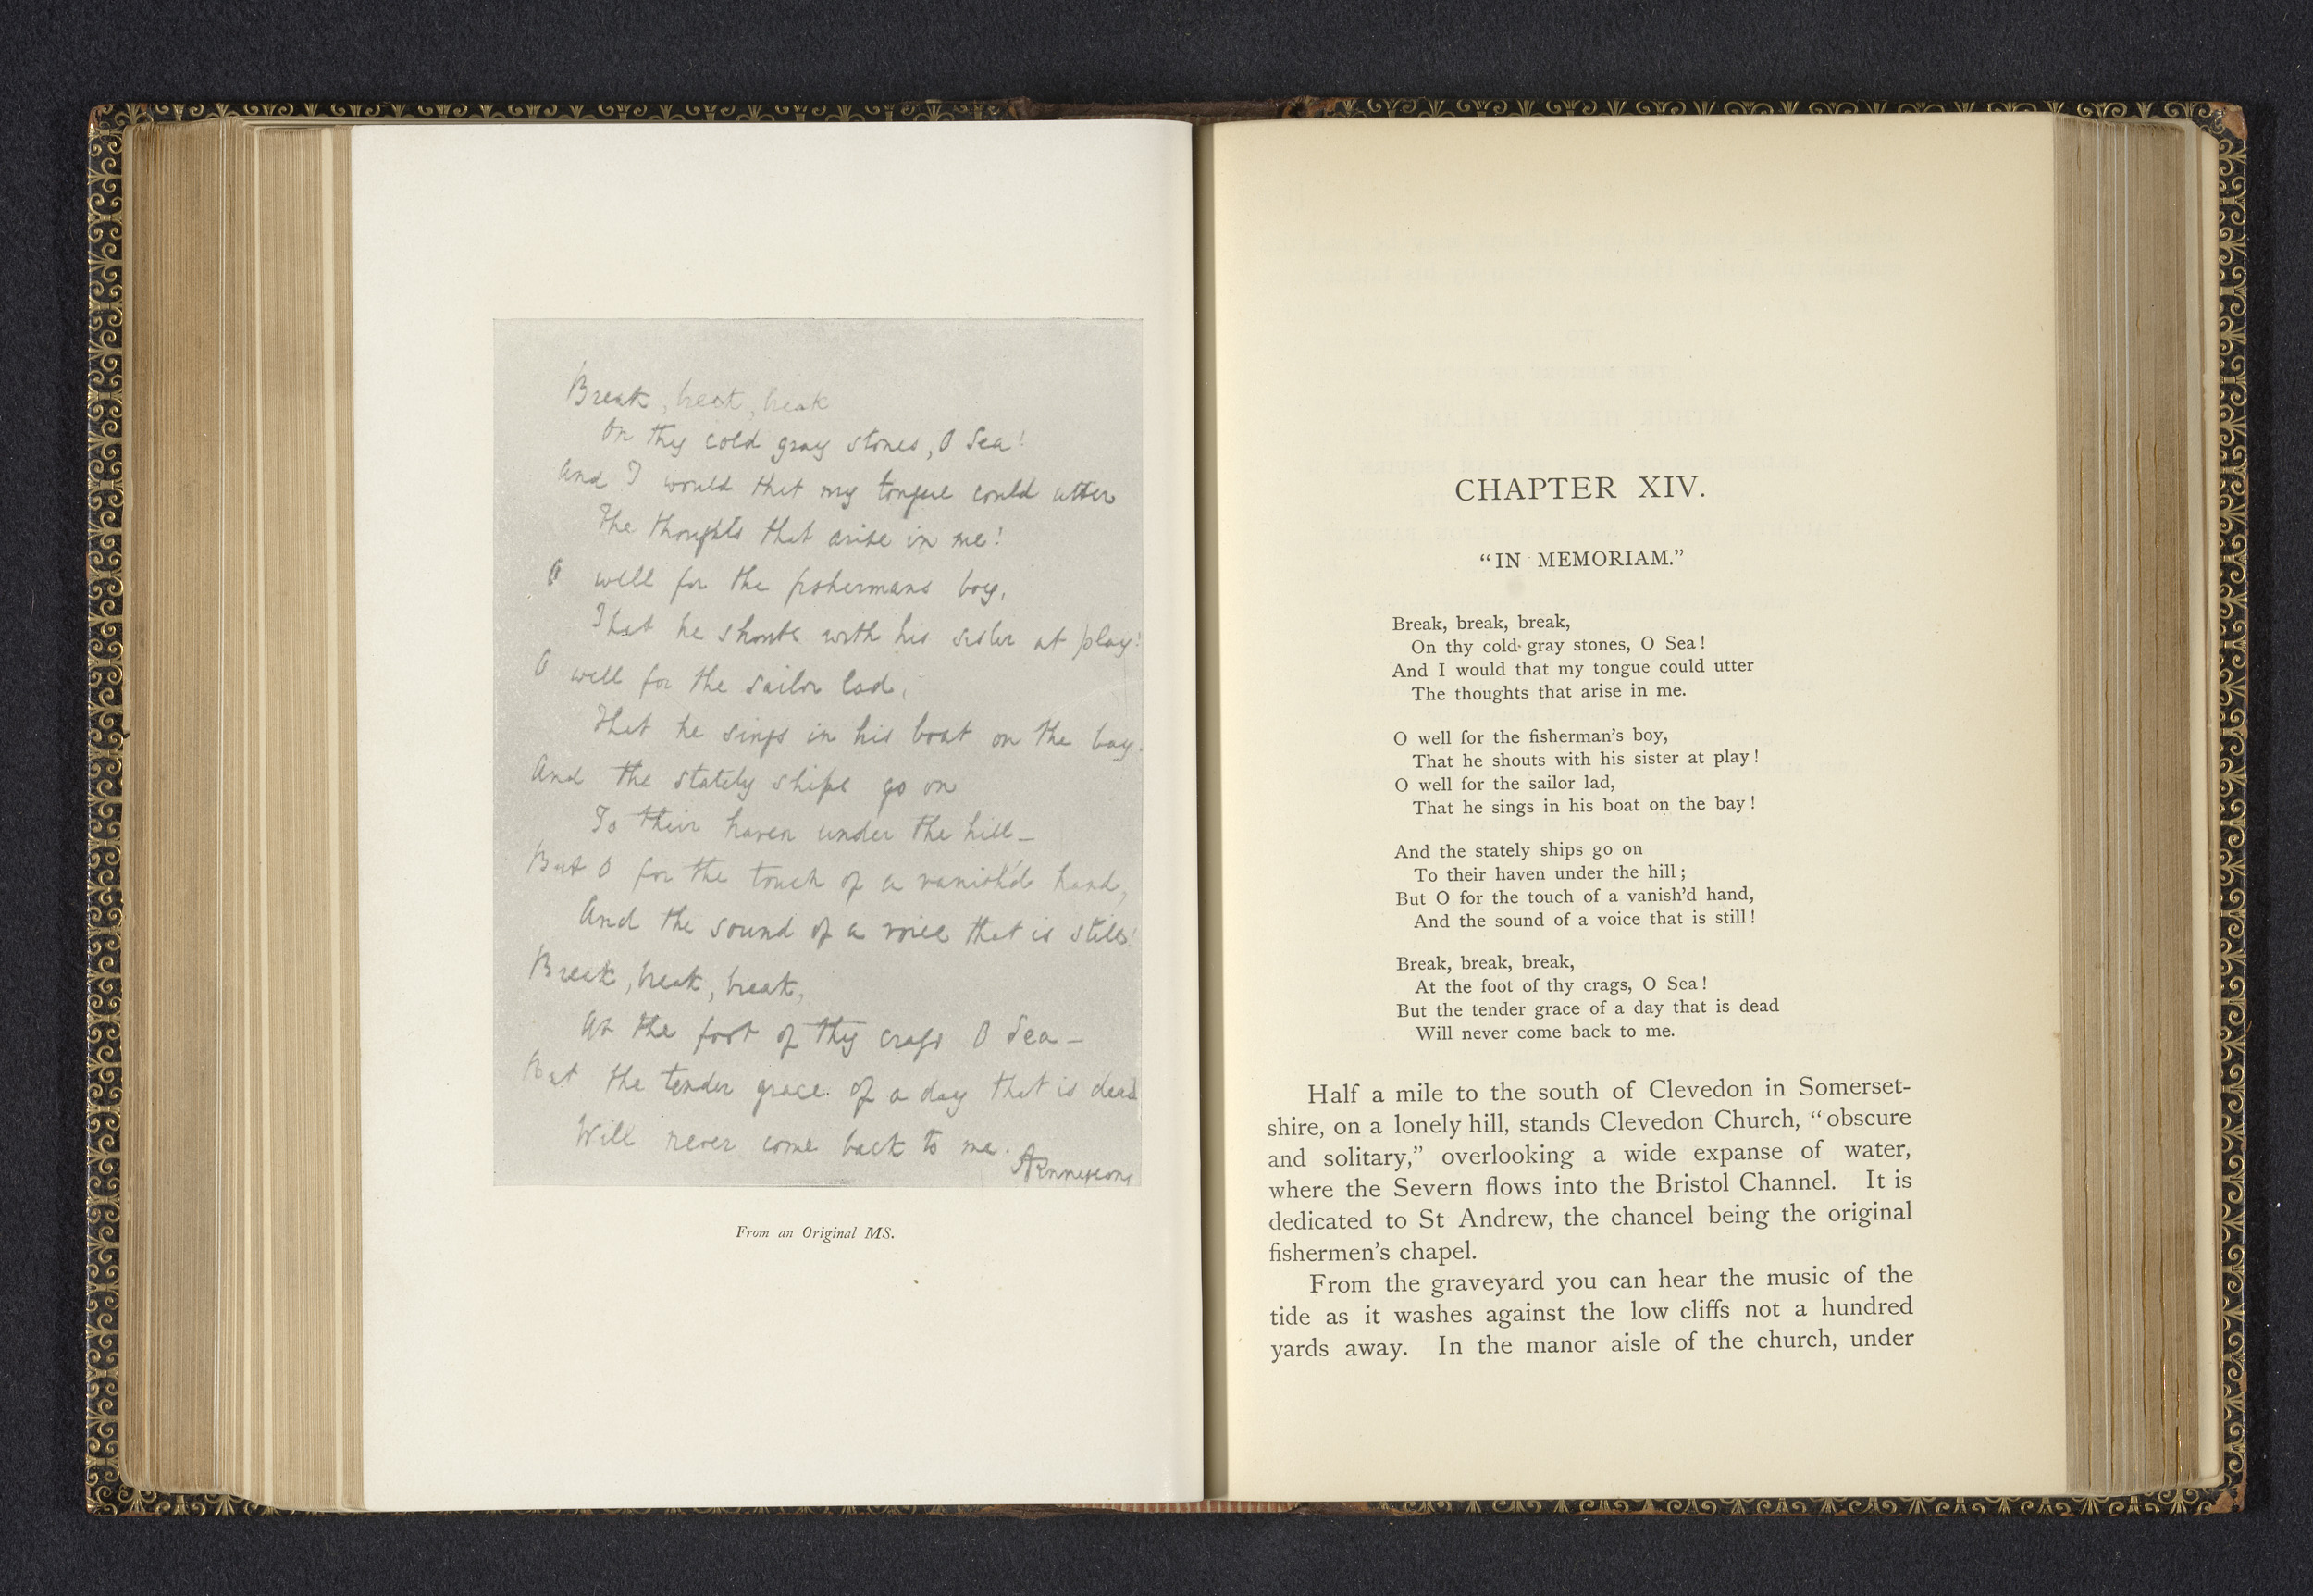 Break, break, break
On thy cold gray stones, O Sea!
And I would that my tongue could utter
The thoughts that arise in me!
O well for the fishermans boy,
That he shouts with his sister at play!
O well for the sailor lad,
That he sings in his boat on the bay.
And the stately ships go on
To their haven under the hill—
But O for the touch of a vanish'd hand,
And the sound of a voice that is still!
Break, break, break,
At the foot of thy crags O Sea—
But the tender grace of a day that is dead
Will never come back to me.
ATennyson
From an Original MS.
CHAPTER XIV.
“IN MEMORIAM.”
Break, break, break,
On thy cold gray stones, O Sea!
And I would that my tongue could utter
The thoughts that arise in me.
O well for the fisherman's boy,
That he shouts with his sister at play!
O well for the sailor lad,
That he sings in his boat on the bay!
And the stately ships go on
To their haven under the hill;
But O for the touch of a vanish'd hand,
And the sound of a voice that is still!
Break, break, break,
At the foot of thy crags, O Sea!
But the tender grace of a day that is dead
Will never come back to me.
Half a mile to the south of Clevedon in Somerset-
shire, on a lonely hill, stands Clevedon Church, “obscure
and solitary,” overlooking a wide expanse of water,
where the Severn flows into the Bristol Channel. It is
dedicated to St Andrew, the chancel being the original
fishermen's chapel.
From the graveyard you can hear the music of the
tide as it washes against the low cliffs not a hundred
yards away. In the manor aisle of the church, under